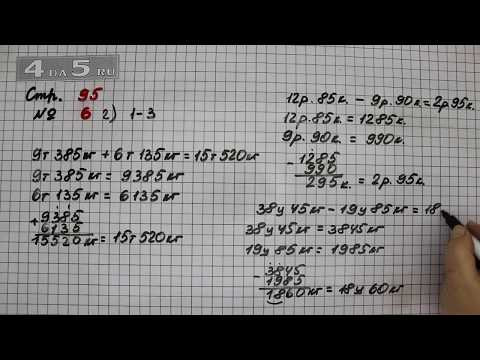 4 DA 5 RU
Стр. 95
№ 6 2) 1-3
9т 385кг + 6т 135кг = 15т 520кг
9т 385кг = 9385кг
6т 135кг = 6135кг
+ 9385
6135
15520кг = 15т 520кг
12р. 85к. - 9р. 90к = 2р 95к.
12р. 85к = 1285к.
9р. 90к. = 990к.
- 1285
990
295к. = 2р. 95к.
38ц 45кг - 19ц 85кг = 18
38ц 45кг = 3845кг
19ц 85кг = 1985кг
- 3845
1985
1860кг = 18ц 60кг